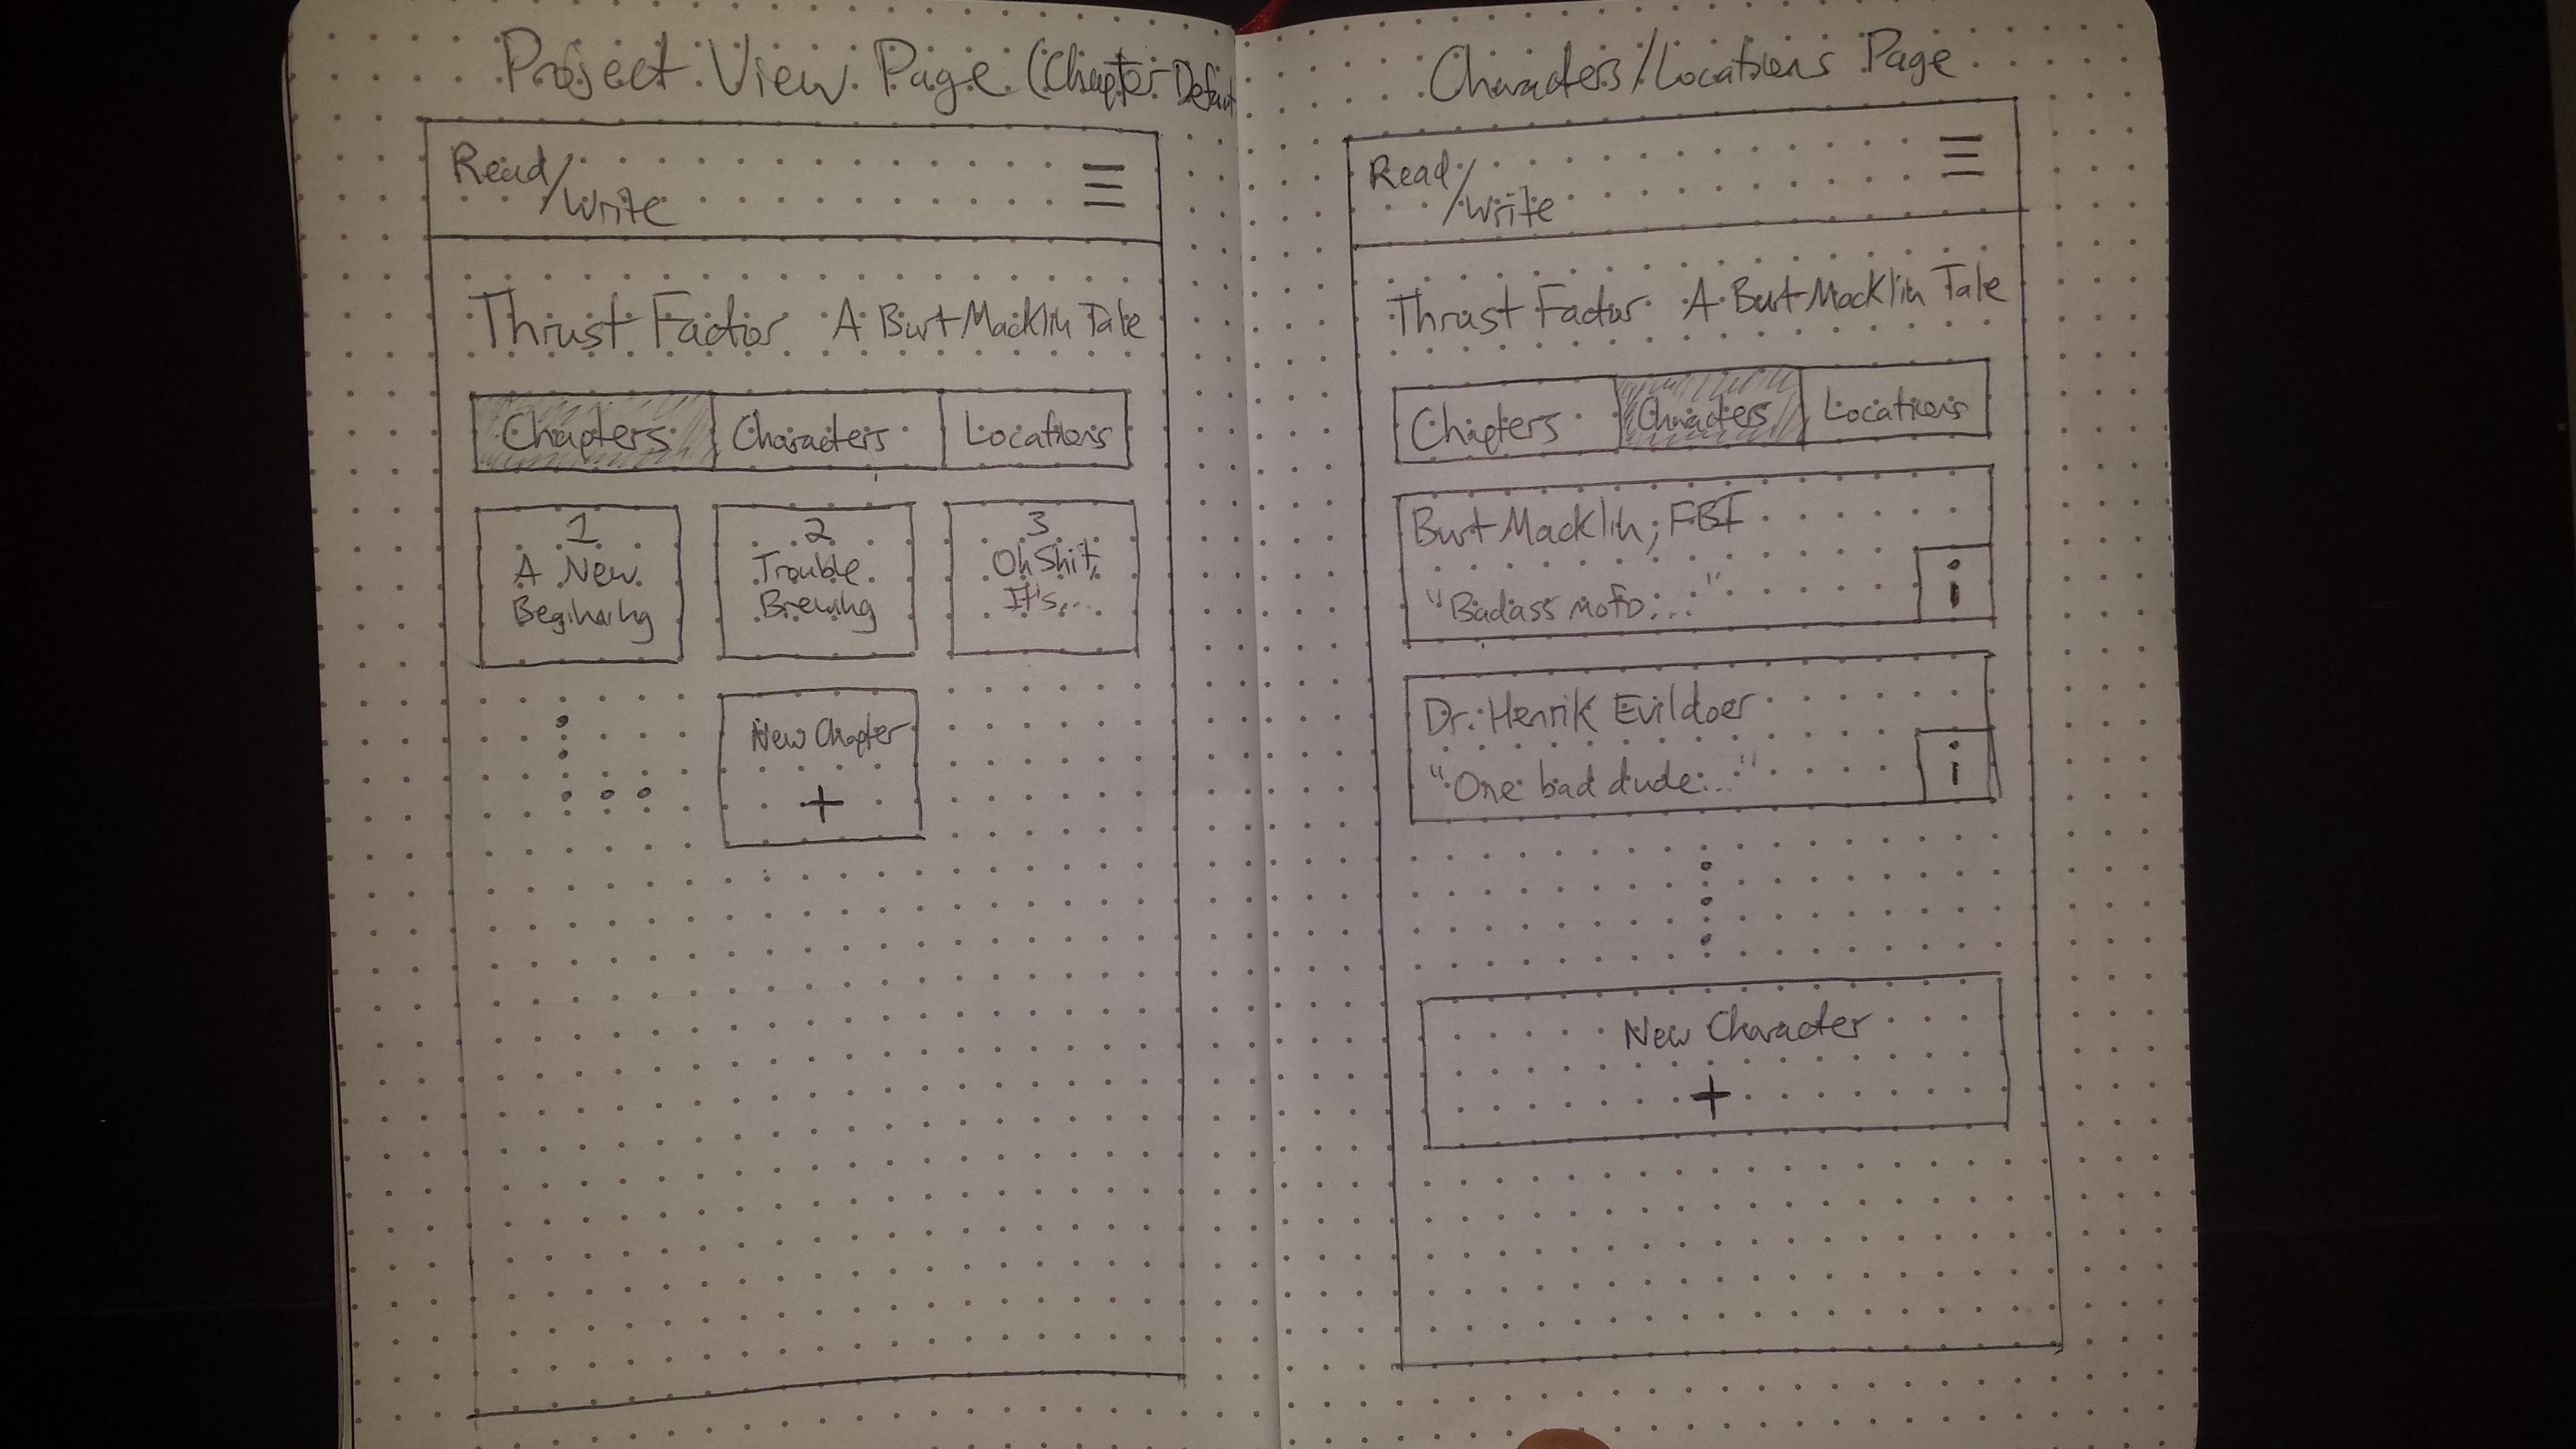 Project View Page (Chapter Defaut
Read/
Write
Thrust Factor A Burt Macklin Tale
Chapters Characters Locations
1
A New
Beginning
2
Trouble
Brewing
3
Oh Shit,
It's...
New Chapter
+
Characters/Locations Page
Read/
Write
Thrust Factor A Burt Macklin Tale
Chapters Characters Locations
Burt Macklin, FBI
"Badass mofo..."
i
Dr. Henrik Evildoer
"One bad dude..."
i
New Character
+